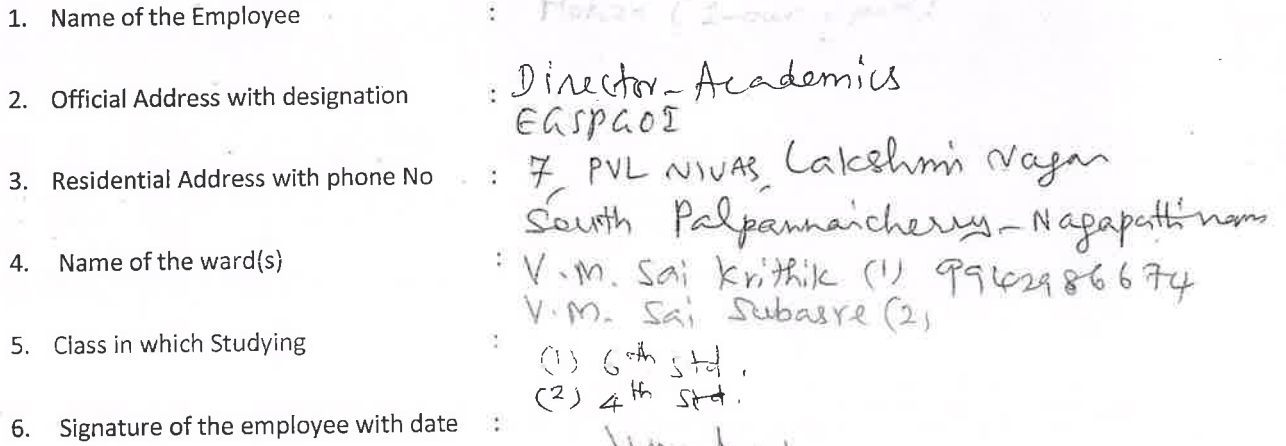 1. Name of the Employee :
2. Official Address with designation : Director - Academics
EGSPGOI
3. Residential Address with phone No : 7, PVL NIVAS, Lakshmi Nagar
South Palpannaicherry - Nagapattinam
4. Name of the ward(s) : V.M. Sai Krithik (1) 9942986674
V.M. Sai Subasre (2)
5. Class in which Studying : (1) 6th std.
(2) 4th std.
6. Signature of the employee with date :